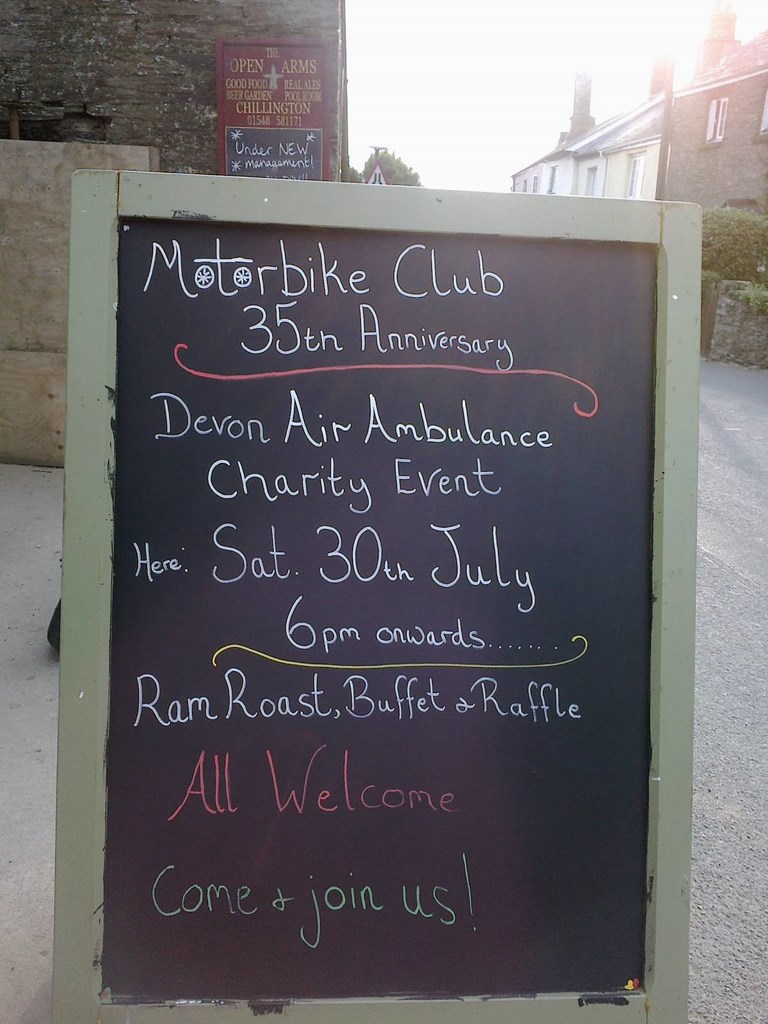 THE
OPEN ARMS
GOOD FOOD REAL ALES
BEER GARDEN POOL ROOM
CHILLINGTON
01548 581171
Under NEW
management!
Motorbike Club
35th Anniversary
Devon Air Ambulance
Charity Event
Here: Sat. 30th July
6pm onwards........
Ram Roast, Buffet & Raffle
All Welcome
Come & join us!